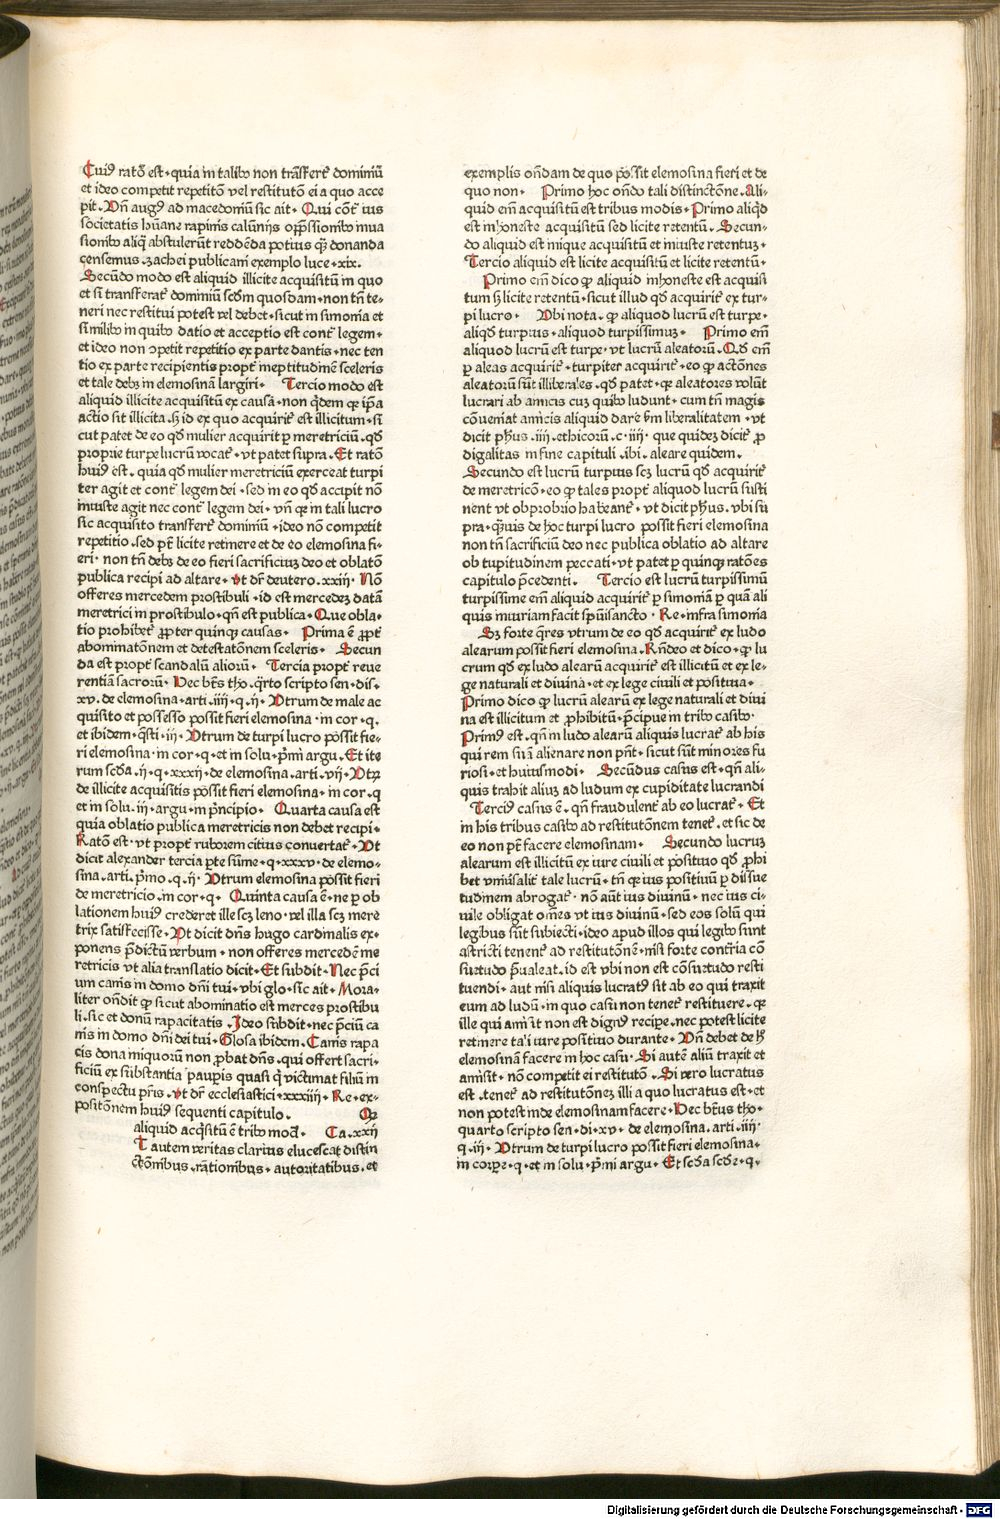 Cuiꝰ ratō est · quia in talibꝰ non trāsfert᷑ dominiū
et ideo competit repetitō vel restitutō ei a quo acce
pit . Vn̄ augꝰ ad macedoniū sic ait · Qui cōt᷑ ius
societatis hūane rapinis calūnijs opp̄ssionibꝰ inua
sionibꝰ aliq̄ abstulerūt reddēda potius q̄ꝫ donanda
censemus · zachei publicani exemplo luce · xix .
Secūdo modo est aliquid illicite acquisitū in quo
et si transferat᷑ dominiū scd̄m quosdam · non tn̄ te-
neri nec restitui potest vel debet · sicut in simonia et
similibꝰ in quibꝰ datio et acceptio est cont᷑ legem ·
et ideo non ꝯpetit repetitio ex parte dantis · nec ten
tio ex parte recipientis propt᷑ ineptitudinē sceleris
et tale debꝫ in elemosinā largiri · Tercio modo est
aliquid illicite acquisitū ex causa · non q̄dem qꝛ ip̄a
actio sit illicita · sꝫ id ex quo acquirit᷑ est illicitum · si
cut patet de eo qd̄ mulier acquirit ꝑ meretriciū · qd̄
proprie turpe lucrū vocat᷑ · vt patet supra · Et ratō
huiꝰ est · quia qd̄ mulier meretriciū exerceat turpi
ter agit et cont᷑ legem dei · sed in eo qd̄ accipit nō
iniuste agit nec cont᷑ legem dei · vn̄ qꝛ in tali lucro
sic acquisito transfert᷑ dominiū · ideo nō competit
repetitio · sed pt̄ licite retinere et de eo elemosina fi-
eri · non tn̄ debꝫ de eo fieri sacrificiuꝫ deo et oblatō
publica recipi ad altare · Vt dr̄ deutero . xxiij · Nō
offeres mercedem prostibuli · id est mercedeꝫ datā
meretrici in prostibulo · qn̄ est publica · Que obla-
tio prohibet᷑ ꝓpter quinqꝫ causas · Prima ē ꝓpt᷑
abominatōnem et detestatōnem sceleris · Secun
da est propt᷑ scandalū aliorū · Tercia propt᷑ reue
rentiā sacrorū · Hec bt̄s tho . q̄rto scripto sen · dis ·
xv · de elemosina · arti · iiij · q · ij · Vtrum de male ac
quisito et possesso possit fieri elemosina · in cor · q ·
et ibidem · q̄sti · iij · Vtrum de turpi lucro possit fie-
ri elemosina · in cor · q · et in solu · p̄mi argu · Et ite
rum scd̄a · ij · q · xxxij · de elemosina . arti · vij · Vtꝝ
de illicite acquisitis possit fieri elemosina · in cor · q
et in solu · iij · argu · in p̄ncipio · Quarta causa est
quia oblatio publica meretricis non debet recipi ·
Ratō est · vt propt᷑ ruborem citius conuertat᷑ · Vt
dicit alexander tercia ꝑte sūme · q · xxxv · de elemo-
sina · arti · p̄mo · q · ij · Vtrum elemosina possit fieri
de meretricio · in cor · q · Quinta causa ē · ne ꝑ ob
lationem huiꝰ crederet ille scꝫ leno · vel illa scꝫ mere
trix satisfecisse · Vt dicit dn̄s hugo cardinalis ex-
ponens p̄dictū verbum · non offeres mercedē me
retricis vt alia translatio dicit · Et subdit · Nec p̄ci
um canis in domo dn̄i tui · vbi glo · sic ait · Mora-
liter on̄dit ꝙ sicut abominatio est merces prostibu
li · sic et donū rapacitatis · Ideo subdit · nec p̄ciū ca
nis in domo dn̄i dei tui · Glosa ibidem . Canis rapa
cis dona iniquorū non ꝓbat dn̄s · qui offert sacri-
ficiū ex substantia pauꝑis quasi q̄ victimat filiū in
conspectu pr̄is · Vt dr̄ ecclesiastici · xxxiiij · Re · ex-
positōnem huiꝰ sequenti capitulo . Qꝛ
aliquid acq̄situ ē tribꝰ modꝭ · Ca · xxij
Vt autem veritas clarius elucescat distin
ctōnibus · ratiōnibus · autoritatibus · et
exemplis on̄dam de quo possit elemosina fieri et de
quo non · Primo hoc on̄do tali distinctōne · Ali-
quid em̄ acquisitū est tribus modis · Primo aliqd̄
est inhoneste acquisitū sed licite retentū · Secun-
do aliquid est inique acquisitū et iniuste retentuꝫ ·
Tercio aliquid est licite acquisitū et licite retentū ·
Primo em̄ dico ꝙ aliquid inhoneste est acquisi
tum sꝫ licite retentū · sicut illud qd̄ acquirit᷑ ex tur-
pi lucro · Vbi nota · ꝙ aliquod lucrū est turpe ·
aliqd̄ turpius · aliquod turpissimuꝫ · Primo em̄
aliquod lucrū est turpe · vt lucrū aleatorū · Qd̄ em̄
ꝑ aleas acquirit᷑ · turpiter acquirit᷑ · eo ꝙ actōnes
aleatorū sūt illiberales · qd̄ patet · qꝛ aleatores volūt
lucrari ab amicis cuꝫ quibꝰ ludunt · cum tn̄ magis
cōueniat amicis aliquid dare ẜm liberalitatem · vt
dicit ph̄us . iiij · ethicorū · c · iiij · que quideꝫ dicit᷑ ꝓ
digalitas in fine capituli · ibi · aleare quidem ·
Secundo est lucrū turpius scꝫ lucrū qd̄ acquirit᷑
de meretricō · eo ꝙ tales propt᷑ aliquod lucrū susti
nent vt obprobrio habeant᷑ · vt dicit ph̄us · vbi su
pra · q̄uis de hoc turpi lucro possit fieri elemosina
non tn̄ sacrificiū deo nec publica oblatio ad altare
ob turpitudinem peccati · vt patet ꝑ quinqꝫ ratōes
capitulo p̄cedenti · Tercio est lucrū turpissimū
turpissime em̄ aliquid acquirit᷑ ꝑ simoniā ꝑ quā ali
quis iniuriam facit sp̄uisancto · Re · infra simonia
Sꝫ forte q̄res vtrum de eo qd̄ acquirit᷑ ex ludo
alearum possit fieri elemosina · Rn̄deo et dico · ꝙ lu
crum qd̄ ex ludo alearū acquirit᷑ est illicitū et ex le-
ge naturali et diuina · et ex lege ciuili et positiua ·
Primo dico ꝙ lucrū alearū ex lege naturali et diui
na est illicitum et ꝓhibitū · p̄cipue in tribꝰ casibꝰ ·
Primꝰ est · qn̄ in ludo alearū aliquis lucrat᷑ ab his
qui rem suā alienare non pn̄t · sicut sūt minores fu
riosi · et huiusmodi · Secūdus casus est · qn̄ ali-
quis trahit aliuꝫ ad ludum ex cupiditate lucrandi
Terciꝰ casus ē · qn̄ fraudulent᷑ ab eo lucrat᷑ · Et
in his tribus casibꝰ ad restitutōnem tenet᷑ · et sic de
eo non pt̄ facere elemosinam · Secundo lucruꝫ
alearum est illicitū ex iure ciuili et positiuo qd̄ ꝓhi
bet vniūsalit᷑ tale lucrū · tn̄ qꝛ ius positiuū ꝑ dissue
tudinem abrogat᷑ · nō aūt ius diuinū · nec ius ci-
uile obligat om̄es vt ius diuinū · sed eos solū qui
legibus sūt subiecti · ideo apud illos qui legibꝰ sunt
astricti tenent᷑ ad restitutōnē · nisi forte contr̄ia cō
suetudo p̄ualeat · id est vbi non est cōsuetudo resti
tuendi · aut nisi aliquis lucratꝰ sit ab eo qui traxit
eum ad ludū · in quo casu non tenet᷑ restituere · qꝛ
ille qui amisit non est dignꝰ recipe · nec potest licite
retinere tali iure positiuo durante · Vn̄ debet de hꝫ
elemosinā facere in hoc casu · Si autē aliū traxit et
amisit · nō competit ei restitutō · Si vero lucratus
est · tenet᷑ ad restitutōneꝫ illi a quo lucratus est · et
non potest inde elemosinam facere · Hec bt̄us tho ·
quarto scripto sen · di · xv · de elemosina · arti · iiij ·
q · iij · Vtrum de turpi lucro possit fieri elemosina ·
in corꝑe · q · et in solu · p̄mi argu · Et scd̄a scd̄e · q ·
Digitalisierung gefördert durch die Deutsche Forschungsgemeinschaft - DFG